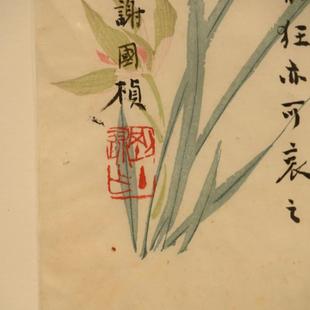 狂亦可哀之
謝國楨